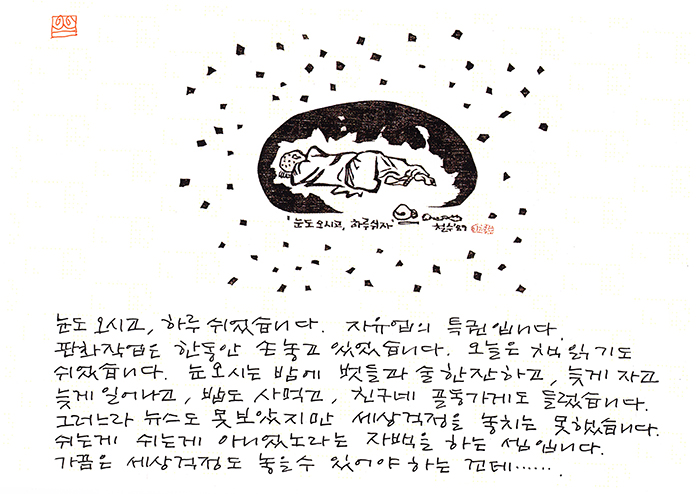 '눈도 오시고, 하루 쉬자'
철수 '89
눈도 오시고, 하루 쉬겠습니다. 자유업의 특권입니다.
판화작업은 한동안 손 놓고 있었습니다. 오늘은 책 읽기도
쉬겠습니다. 눈 오시는 밤에 벗들과 술 한잔하고, 늦게 자고
늦게 일어나고, 밥도 사먹고, 친구네 골동가게도 들렀습니다.
그러느라 뉴스도 못 보았지만 세상걱정을 놓치는 못했습니다.
쉬는게 쉬는게 아니었노라는 자백을 하는 셈입니다.
가끔은 세상걱정도 놓을 수 있어야 하는 건데······.